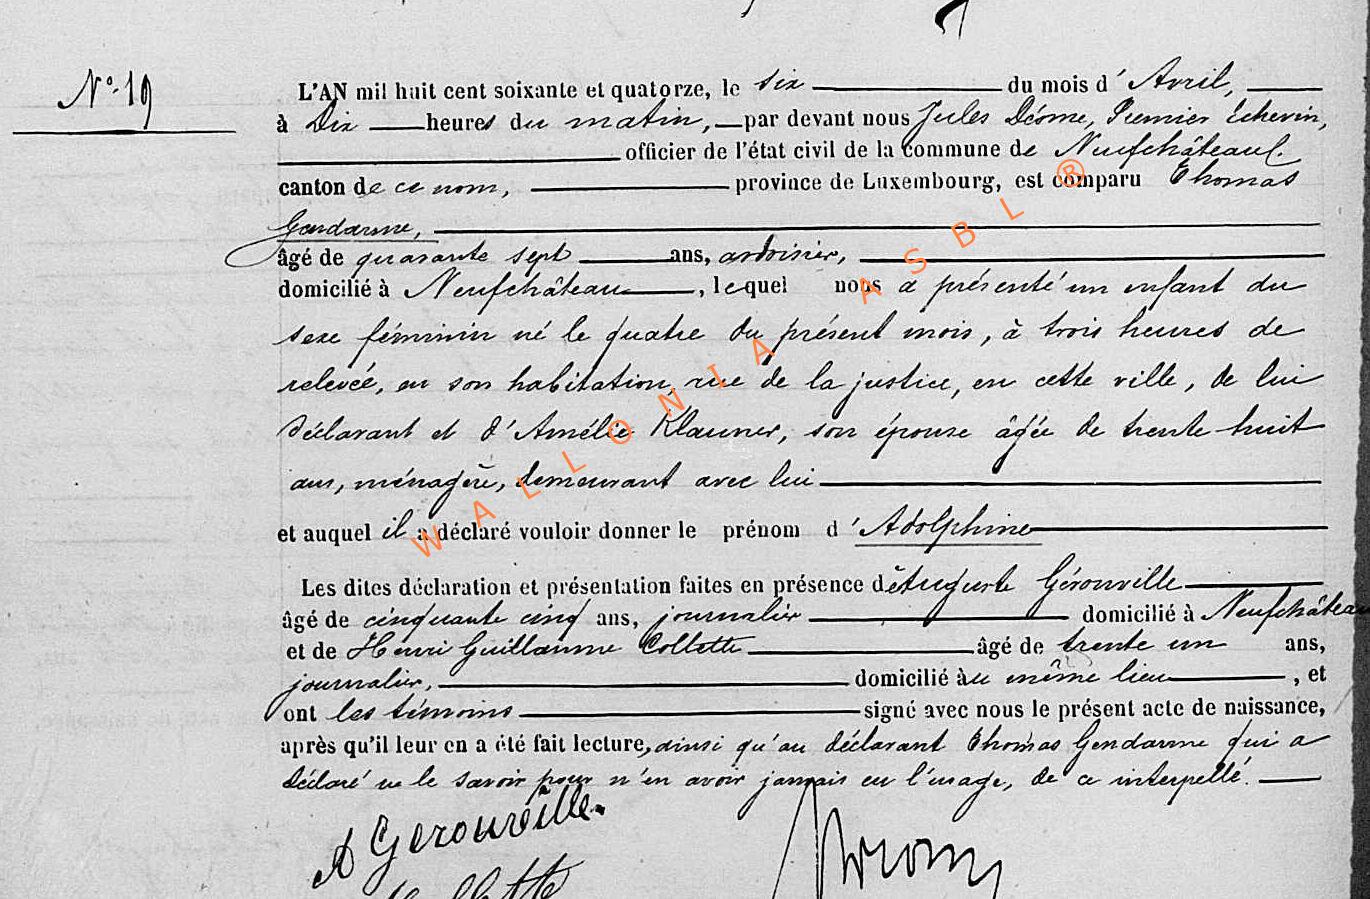 N° 19
L'AN mil huit cent soixante et quatorze, le six du mois d'Avril,
à Dix heures du matin, par devant nous Jules Déome, Premier Echevin,
officier de l'état civil de la commune de Neufchâteau
canton de ce nom, province de Luxembourg, est comparu Thomas
Gendarme,
âgé de quarante sept ans, ardoisier,
domicilié à Neufchâteau, lequel nous a présenté un enfant du
sexe féminin né le quatre du présent mois, à trois heures de
relevée, en son habitation, rue de la justice, en cette ville, de lui
déclarant et d'Amélie Klauner, son épouse âgée de trente huit
ans, ménagère, demeurant avec lui
et auquel il a déclaré vouloir donner le prénom d'Adolphine
Les dites déclaration et présentation faites en présence d'Auguste Gérouville
âgé de cinquante cinq ans, journalier domicilié à Neufchâteau
et de Henri Guillaume Collette âgé de trente un ans,
journalier, domicilié au même lieu, et
ont les témoins signé avec nous le présent acte de naissance,
après qu'il leur en a été fait lecture, ainsi qu'au déclarant Thomas Gendarme qui a
déclaré ne le savoir pour n'en avoir jamais eu l'usage, de ce interpellé.
A Gerouville.
Collette
WALLONIA ASBL ®